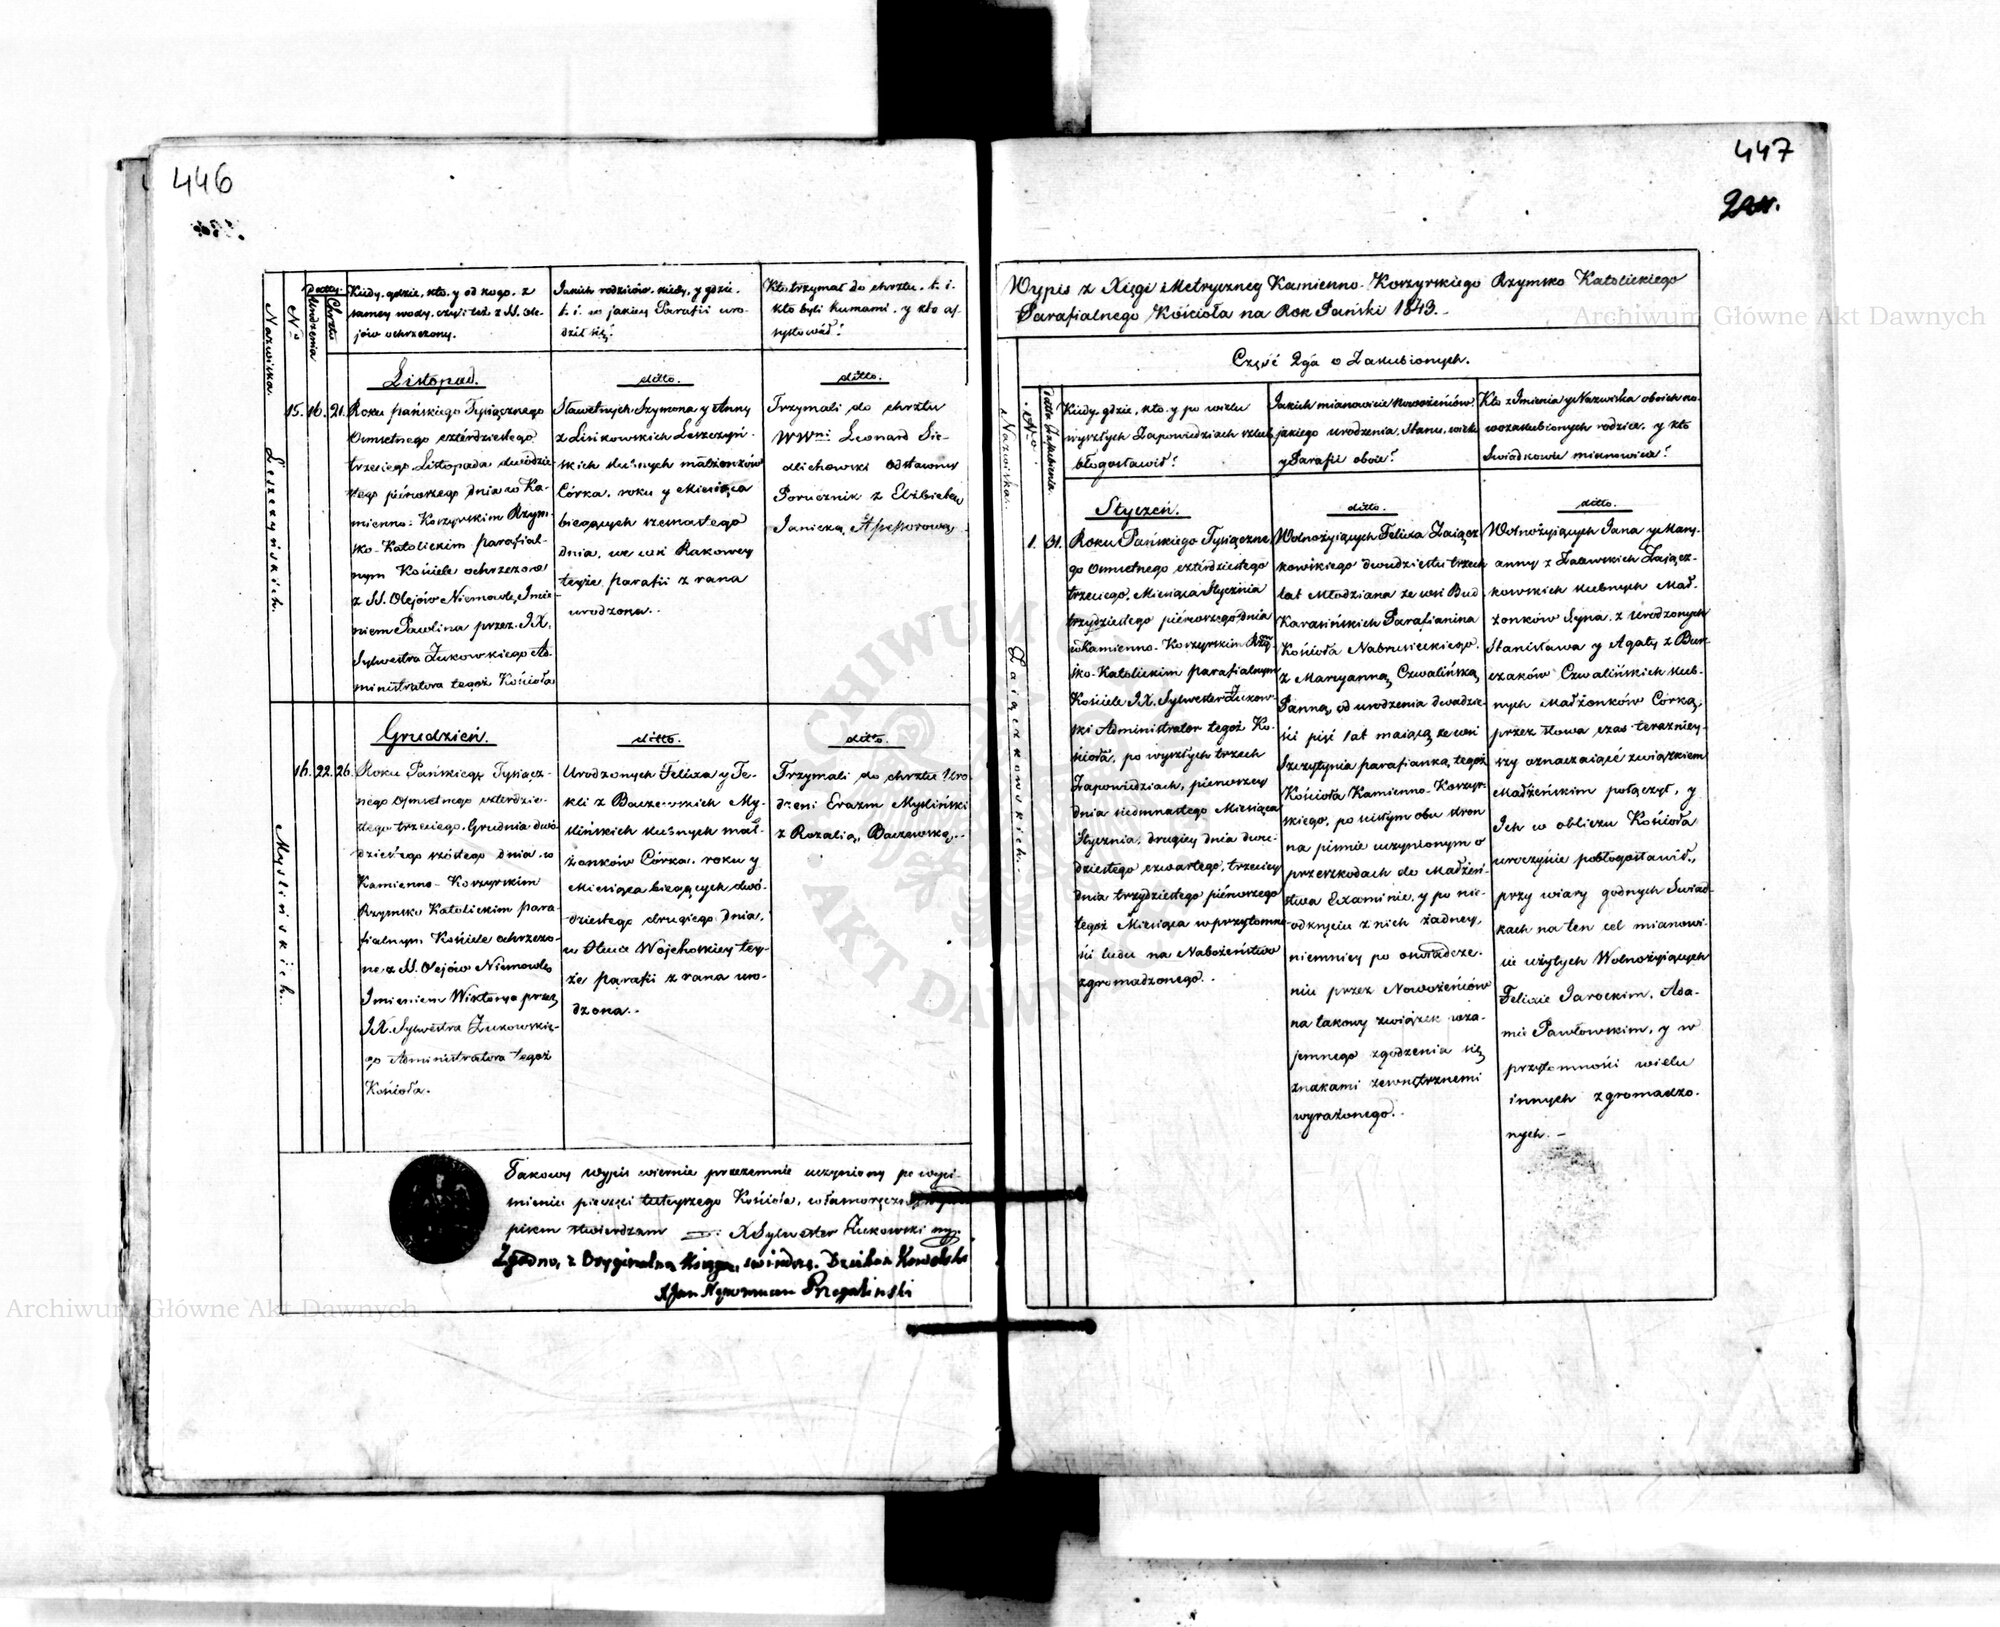 446
Nazwiska.
No
Datta.
Urodzenia
Chrztu
Kiedy, gdzie, kto, y od kogo, z
samey wody, czyli też z SS. Ole-
jów ochrzczony.
Jakich rodziców, kiedy, y gdzie,
t. i. w jakiey Parafii uro-
dził się?
Kto trzymał do chrztu, t. i.
kto byli kumami, y kto as-
systował?
Leszczyńskich.
15. 16. 21.
Listopad.
Roku pańskiego Tysiącznego
Osmsetnego czterdziestego
trzeciego, Listopada dwódzie-
stego piérwszego dnia w Ka-
mienno-Koszyrskim Rzym-
sko-Katolickim parafial-
nym Kościele ochrzczona
z SS. Olejów Niemowlę, Imie-
niem Pawlina przez J.X.
Sylwestra Żukowskiego Ad-
ministratora tegoż Kościoła
ditto.
Sławetnych Szymona y Anny
z Lisikowskich Leszczyń-
skich slubnych małżonków
Córka, roku y Miesiąca
bieżących szesnastego
dnia, we wsi Rakowey
teyże parafii z rana
urodzona..
ditto.
Trzymali do chrztu
WWni Leonard Sie-
dlichowski Odstawny
Porucznik z Elżbietą
Janiczką
Myślińskich.
16. 22. 26.
Grudzień.
Roku Pańskiego Tysiącz-
nego Osmsetnego czterdzie-
stego trzeciego, Grudnia dwó-
dziestego szóstego dnia, w
Kamienno-Koszyrskim
Rzymsko Katolickim para-
fialnym Kościele ochrzczo-
na z SS. Olejów Niemowlę
Imieniem Wiktorya przez
J.X. Sylwestra Żukowskie-
go Administratora tegoż
Kościoła.
ditto.
Urodzonych Felixa y Te-
kli z Baczewskich My-
ślińskich slubnych mał-
żonków Córka, roku y
Miesiąca bieżących dwó-
dziestego drugiego dnia,
w Wojeholskiey tey-
że parafii z rana uro-
dzona..
ditto.
Trzymali do chrztu Uro-
dzeni Erazm Myśliński
z Rozalią Baczewską..
Takowy wypis wiernie przezemnie uczyniony po wyci-
śnieniu pieczęci tuteyszego Kościoła, własnoręcznym
pismem stwierdzam X Sylwester Żukowski mp.
Zgodno, z Oryginalną Księgą, swiadczę. Dziekan Kowelski
X Jan Nepomucen Przegaliński
447
Wypis z Xięgi Metryczney Kamienno-Koszyrskiego Rzymsko Katolickiego
Parafialnego Kościoła na Rok Pański 1843.
Część 2ga o Zaślubionych.
Nazwiska.
No
Datta Zaślubienia.
Kiedy, gdzie, kto, y po wielu
wyszłych Zapowiedziach szlub
błogosławił?
Jakich mianowicie Nowożeńców
jakiego urodzenia, Stanu, wieku
y Parafii oboie?
Kto z Imienia y Nazwiska oboich no-
wozaślubionych rodzice, y kto
Swiadkowie mianowicie?
Zaiączkowskich.
1. 31.
Styczeń.
Roku Pańskiego Tysiączne-
go Osmsetnego czterdziestego
trzeciego, Miesiąca Stycznia
trzydziestego piérwszego dnia
w Kamienno-Koszyrskim Rzym-
sko-Katolickim parafialnym
Kościele J.X. Sylwester Żukow-
ski Administrator tegoż Ko-
ścioła, po wyszłych trzech
Zapowiedziach, pierwszey
dnia siedmnastego Miesiąca
Stycznia, drugiey dnia dwu-
dziestego czwartego, trzeciey
dnia trzydziestego piérwszego
tegoż Miesiąca w przytomno-
ści ludu na Nabożeństwo
zgromadzonego.
ditto.
Wolnożyiących Felixa Zaiącz-
kowskiego dwudziestu trzech
lat Młodziana ze wsi Bud
Karasińskich Parafianina
Kościoła
z Maryanną Czwalińską
Panną od urodzenia dwadzie-
ści pięć lat maiącą ze wsi
Szczytynia parafianką tegoż
Kościoła Kamienno-Koszyr-
skiego, po scisłym obu stron
na pismie uczynionym o
przeszkodach do Małżeń-
stwa Examinie, y po nie-
odkryciu z nich żadney,
niemniey po oswiadcze-
niu przez Nowożeńców
na takowy związek wza-
jemnego zgodzenia się
znakami zewnętrznemi
wyrażonego..
ditto.
Wolnożyiących Jana y Mary-
anny z Zalewskich Zaiącz-
kowskich slubnych Mał-
żonków Syna, z Urodzonych
Stanisława y Agaty z Bur-
czaków Czwalińskich slub-
nych Małżonków Córką,
przez słowa czas teraźniey-
szy oznaczaiące związkiem
Małżeńskim połączył, y
Ich w obliczu Kościoła
uroczyście pobłogosławił,
przy wiary godnych Swiad-
kach na ten cel mianowi-
cie użytych Wolnożyiących
Felixie Jarockim, Ada-
mie Pawłowskim, y w
przytomności wielu
innych zgromadzo-
nych. –
Archiwum Główne Akt Dawnych
Archiwum Główne Akt Dawnych
ARCHIWUM
AKT DAWNYCH